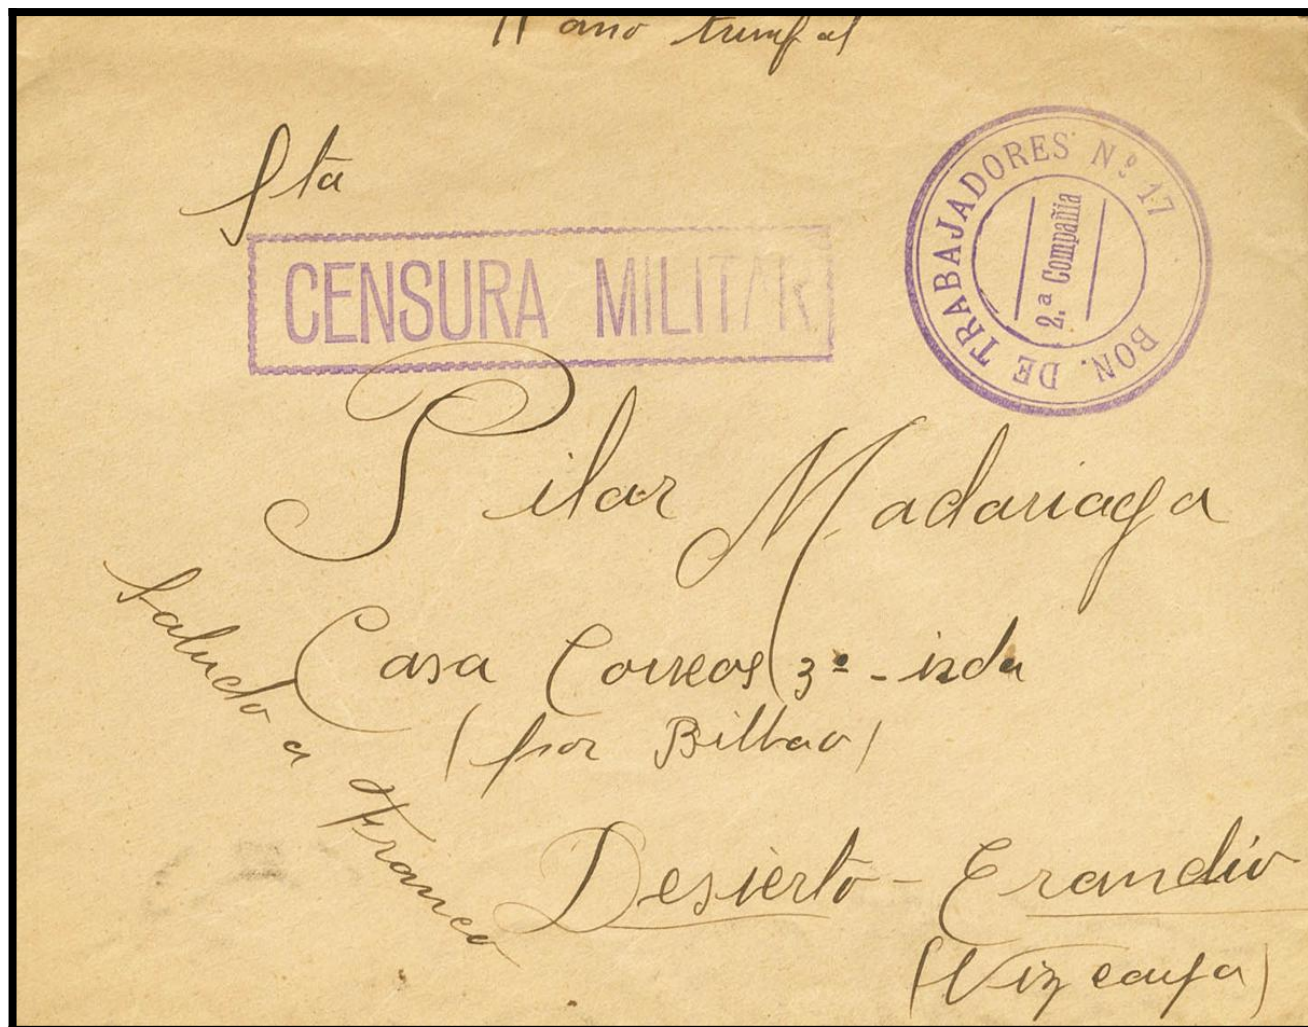 II año triunfal
Sta
CENSURA MILITAR
BON. DE TRABAJADORES Nº 17
2.ª Compañia
Pilar Madariaga
Casa Correos 3º - izda
(por Bilbao)
Saludo a Franco
Desierto - Erandio
(Vizcaya)